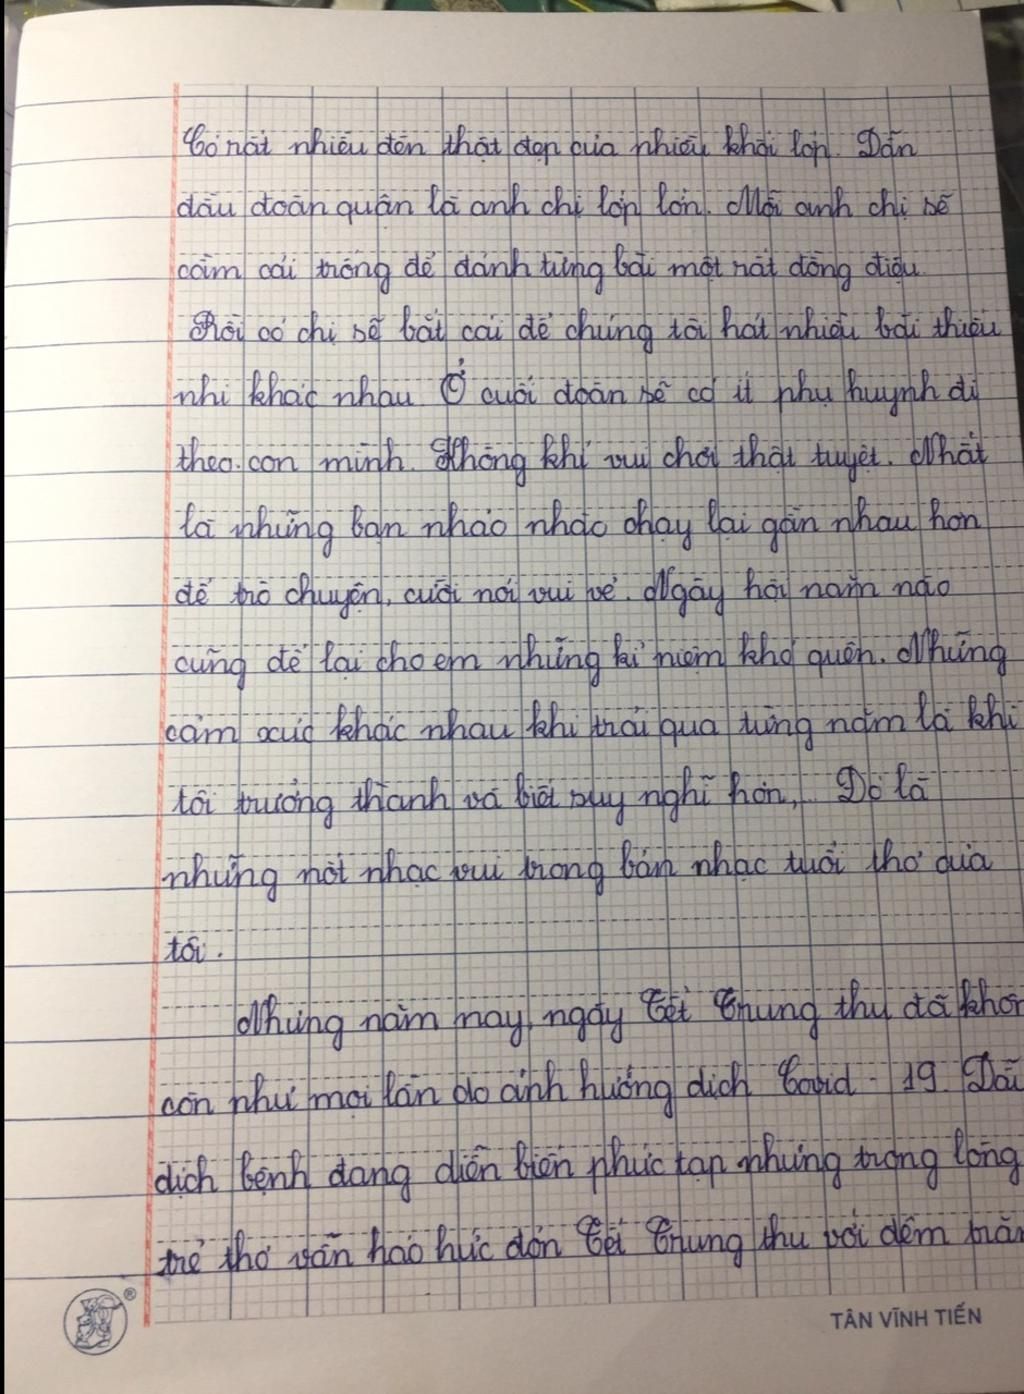 Có rất nhiều đèn thật đẹp của nhiều khối lớp. Dẫn
đầu đoàn quân là anh chị lớp lớn. Mỗi anh chị sẽ
cầm cái trống để đánh từng bài một rất đồng điệu.
Rồi có chị sẽ bắt cái để chúng tôi hát nhiều bài thiếu
nhi khác nhau. Ở cuối đoàn sẽ có ít phụ huynh đi
theo con mình. Không khí vui chơi thật tuyệt. Nhất
là những bạn nháo nhào chạy lại gần nhau hơn
để trò chuyện, cười nói vui vẻ. Ngày hội năm nào
cũng để lại cho em những kỉ niệm khó quên. Những
cảm xúc khác nhau khi trải qua từng năm là khi
tôi trưởng thành và biết suy nghĩ hơn,.. Đó là
những nốt nhạc vui trong bản nhạc tuổi thơ của
tôi.
Nhưng năm nay, ngày Tết Trung thu đã khôn
còn như mọi lần do ảnh hưởng dịch Covid - 19. Dẫu
dịch bệnh đang diễn biến phức tạp nhưng trong lòng
trẻ thơ vẫn háo hức đón Tết Trung thu với đêm trăn
®
TÂN VĨNH TIẾN